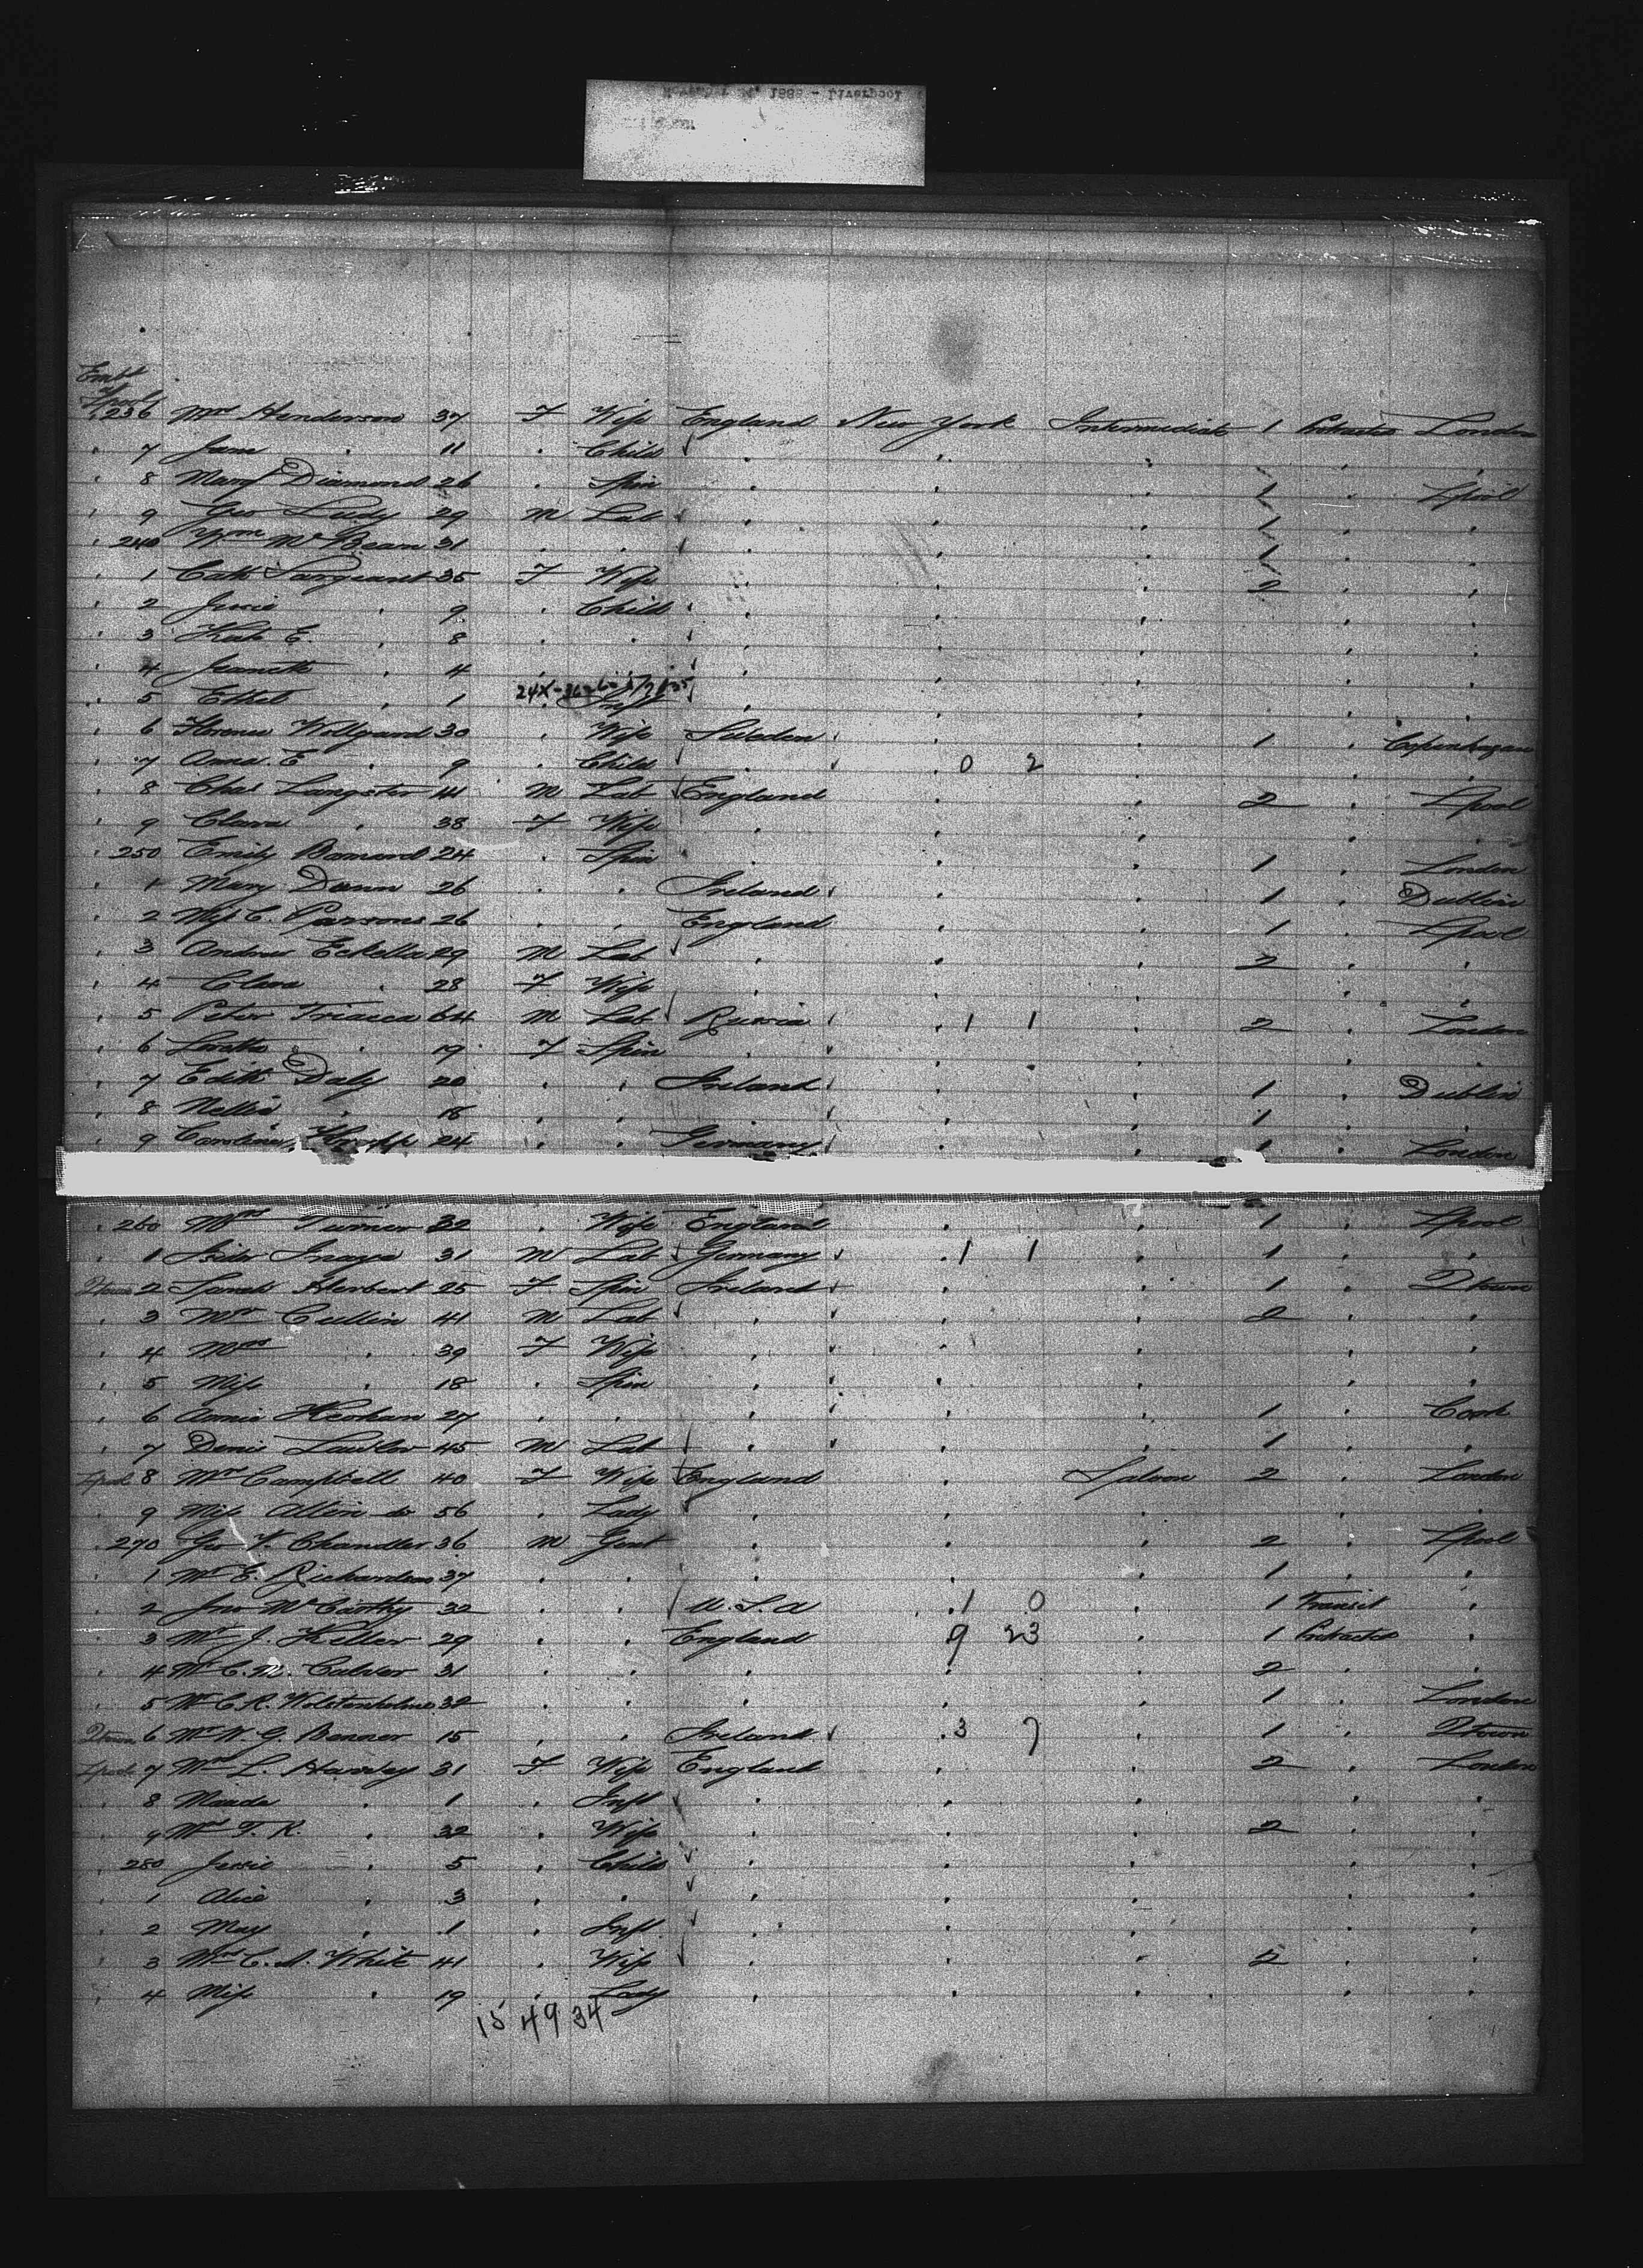 Embd
Lpool
236 Mrs Henderson 37 F Wife England New York Intermediate 1 Protracted London
" 7 Jane " 11 " Child " " " " "
" 8 Mary Diamond 26 " Spin " " " 1 " Lpool
" 9 Geo 29 M Lab " " " 1 " "
" 240 Wm McBean 31 " " " " " 1 " "
" 1 Cath Sargeant 35 F Wife " " " 2 " "
" 2 Jessie " 9 " Child " " " " "
" 3 Kate E. " 8 " " " " " " "
" 4 Jeanette " 4 " " " " " " "
" 5 Ethel " 1 " Inft " " " " "
" 6 Florence Wollgand 30 " Wife Sweden " " 1 " Copenhagen
" 7 Anna E " 9 " Child " " 0 2 " " "
" 8 Chas Langster 41 M Lab England " " 2 " Lpool
" 9 Clara " 38 F Wife " " " " "
" 250 Emily Barnard 24 " Spin " " " 1 " London
" 1 Mary Dunn 26 " " Ireland " " 1 " Dublin
" 2 Miss C. Parsons 26 " " England " " 1 " Lpool
" 3 Andrew Eckella 29 M Lab " " " 2 " "
" 4 Clara " 28 F Wife " " " " "
" 5 Peter Triasca 64 M Lab Russia " 1 1 " 2 " London
" 6 " 19 F Spin " " " " "
" 7 Edith Daly 20 " " Ireland " " 1 " Dublin
" 8 Nellie " 18 " " " " " 1 " "
" 9 Caroline 24 " " Germany " " 1 " London
" 260 Mrs Turner 32 " Wife England " " 1 " Lpool
" 1 31 M Lab Germany " 1 1 " 1 " "
Qtown 2 Sarah Herbert 25 F Spin Ireland " " 1 " Qtown
" 3 Mr Cullin 41 M Lab " " " 2 " "
" 4 Mrs " 39 F Wife " " " " "
" 5 Miss " 18 " Spin " " " " "
" 6 Annie Keohan 27 " " " " " 1 " Cork
" 7 Denis Lawlor 45 M Lab " " " 1 " "
Lpool 8 Mrs Campbell 40 F Wife England " Saloon 2 " London
" 9 Miss Allin do 56 " Lady " " " " "
" 270 Geo V. Chandler 36 M Gent " " " 2 " Lpool
" 1 Mr E. Richardson 37 " " " " " 1 " "
" 2 Jno McCarthy 32 " " U.S.A " 1 0 " 1 Transit "
" 3 Mr J. Keller 29 " " England " 9 23 " 1 Protracted "
" 4 Mr C. M. Culver 31 " " " " " 2 " "
" 5 Mr C. R. Wolstenholme 32 " " " " " 1 " London
Qtown 6 Mr W. G. Bonner 15 " " Ireland " 3 7 " 1 " Qtown
Lpool 7 Mrs L. Hanley 31 F Wife England " " 2 " London
" 8 Maude " 1 " Inft " " " " "
" 9 Mrs T. K. " 32 " Wife " " " 2 " "
" 280 Jessie " 5 " Child " " " " "
" 1 Alice " 3 " " " " " " "
" 2 May " 1 " Inft " " " " "
" 3 Mrs C. A. White 41 " Wife " " " 2 " "
" 4 Miss " 19 " Lady " " " " "
15 49 34